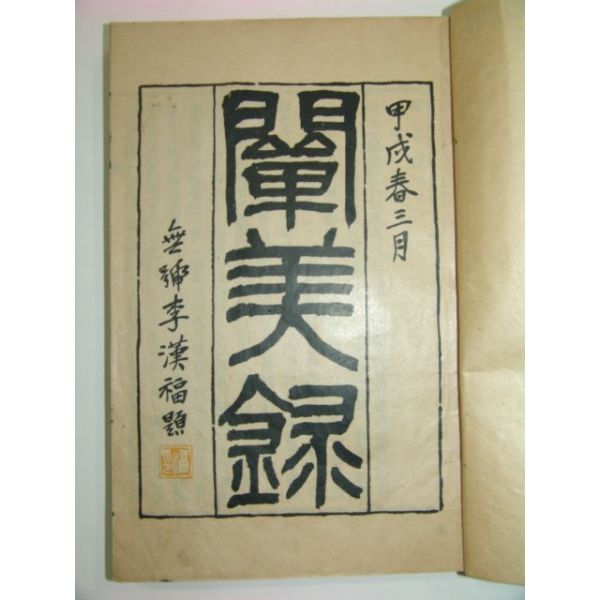 甲戌春三月
闡美録
無號李漢福題